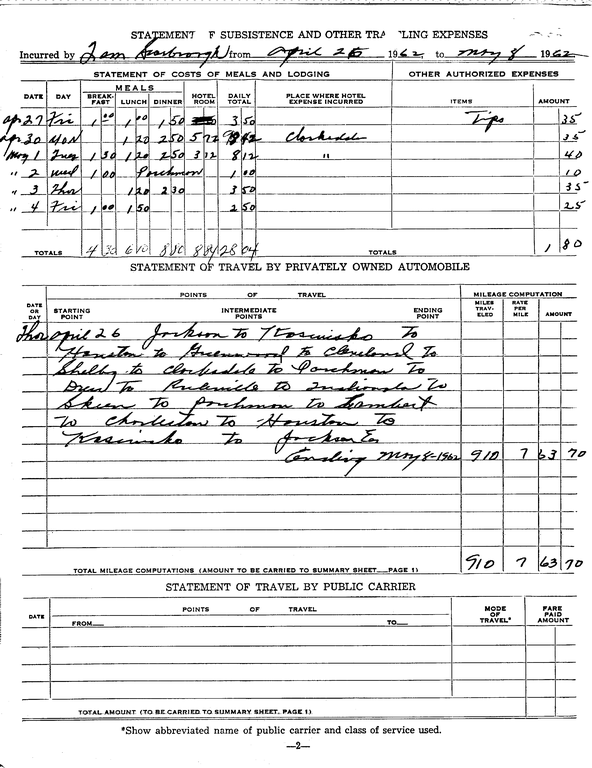 STATEMENT F SUBSISTENCE AND OTHER TRA LING EXPENSES
Incurred by Tom Scarbrough from April 26 1962 to May 8 1962
STATEMENT OF COSTS OF MEALS AND LODGING OTHER AUTHORIZED EXPENSES
DATE DAY MEALS BREAK-FAST LUNCH DINNER HOTEL ROOM DAILY TOTAL PLACE WHERE HOTEL EXPENSE INCURRED ITEMS AMOUNT
Ap 27 Fri 1 00 1 00 1 50 3 50 Tips 35
Ap 30 Mon 1 20 2 50 5 72 9 42 Clarksdale 35
May 1 Tues 1 30 1 20 2 50 3 12 8 12 " 40
" 2 Wed 1 00 Parchman 1 00 10
" 3 Thur 1 20 2 30 3 50 35
" 4 Fri 1 00 1 50 2 50 25
TOTALS 4 30 6 10 8 80 8 84 28 04 TOTALS 1 80
STATEMENT OF TRAVEL BY PRIVATELY OWNED AUTOMOBILE
DATE OR DAY POINTS OF TRAVEL MILEAGE COMPUTATION
STARTING POINT INTERMEDIATE POINTS ENDING POINT MILES TRAV-ELED RATE PER MILE AMOUNT
Thur April 26 Jackson to Kosciusko to
Houston to Greenwood to Cleveland to
Shelby to Clarksdale to Parchman to
Drew to Ruleville to Indianola to
Skene to Parchman to Lambert
to Charleston to Houston to
Kosciusko to Jackson
Ending May 8-1962 910 7 63 70
TOTAL MILEAGE COMPUTATIONS (AMOUNT TO BE CARRIED TO SUMMARY SHEET PAGE 1) 910 7 63 70
STATEMENT OF TRAVEL BY PUBLIC CARRIER
DATE POINTS OF TRAVEL MODE OF TRAVEL* FARE PAID AMOUNT
FROM TO
TOTAL AMOUNT (TO BE CARRIED TO SUMMARY SHEET, PAGE 1)
*Show abbreviated name of public carrier and class of service used.
—2—